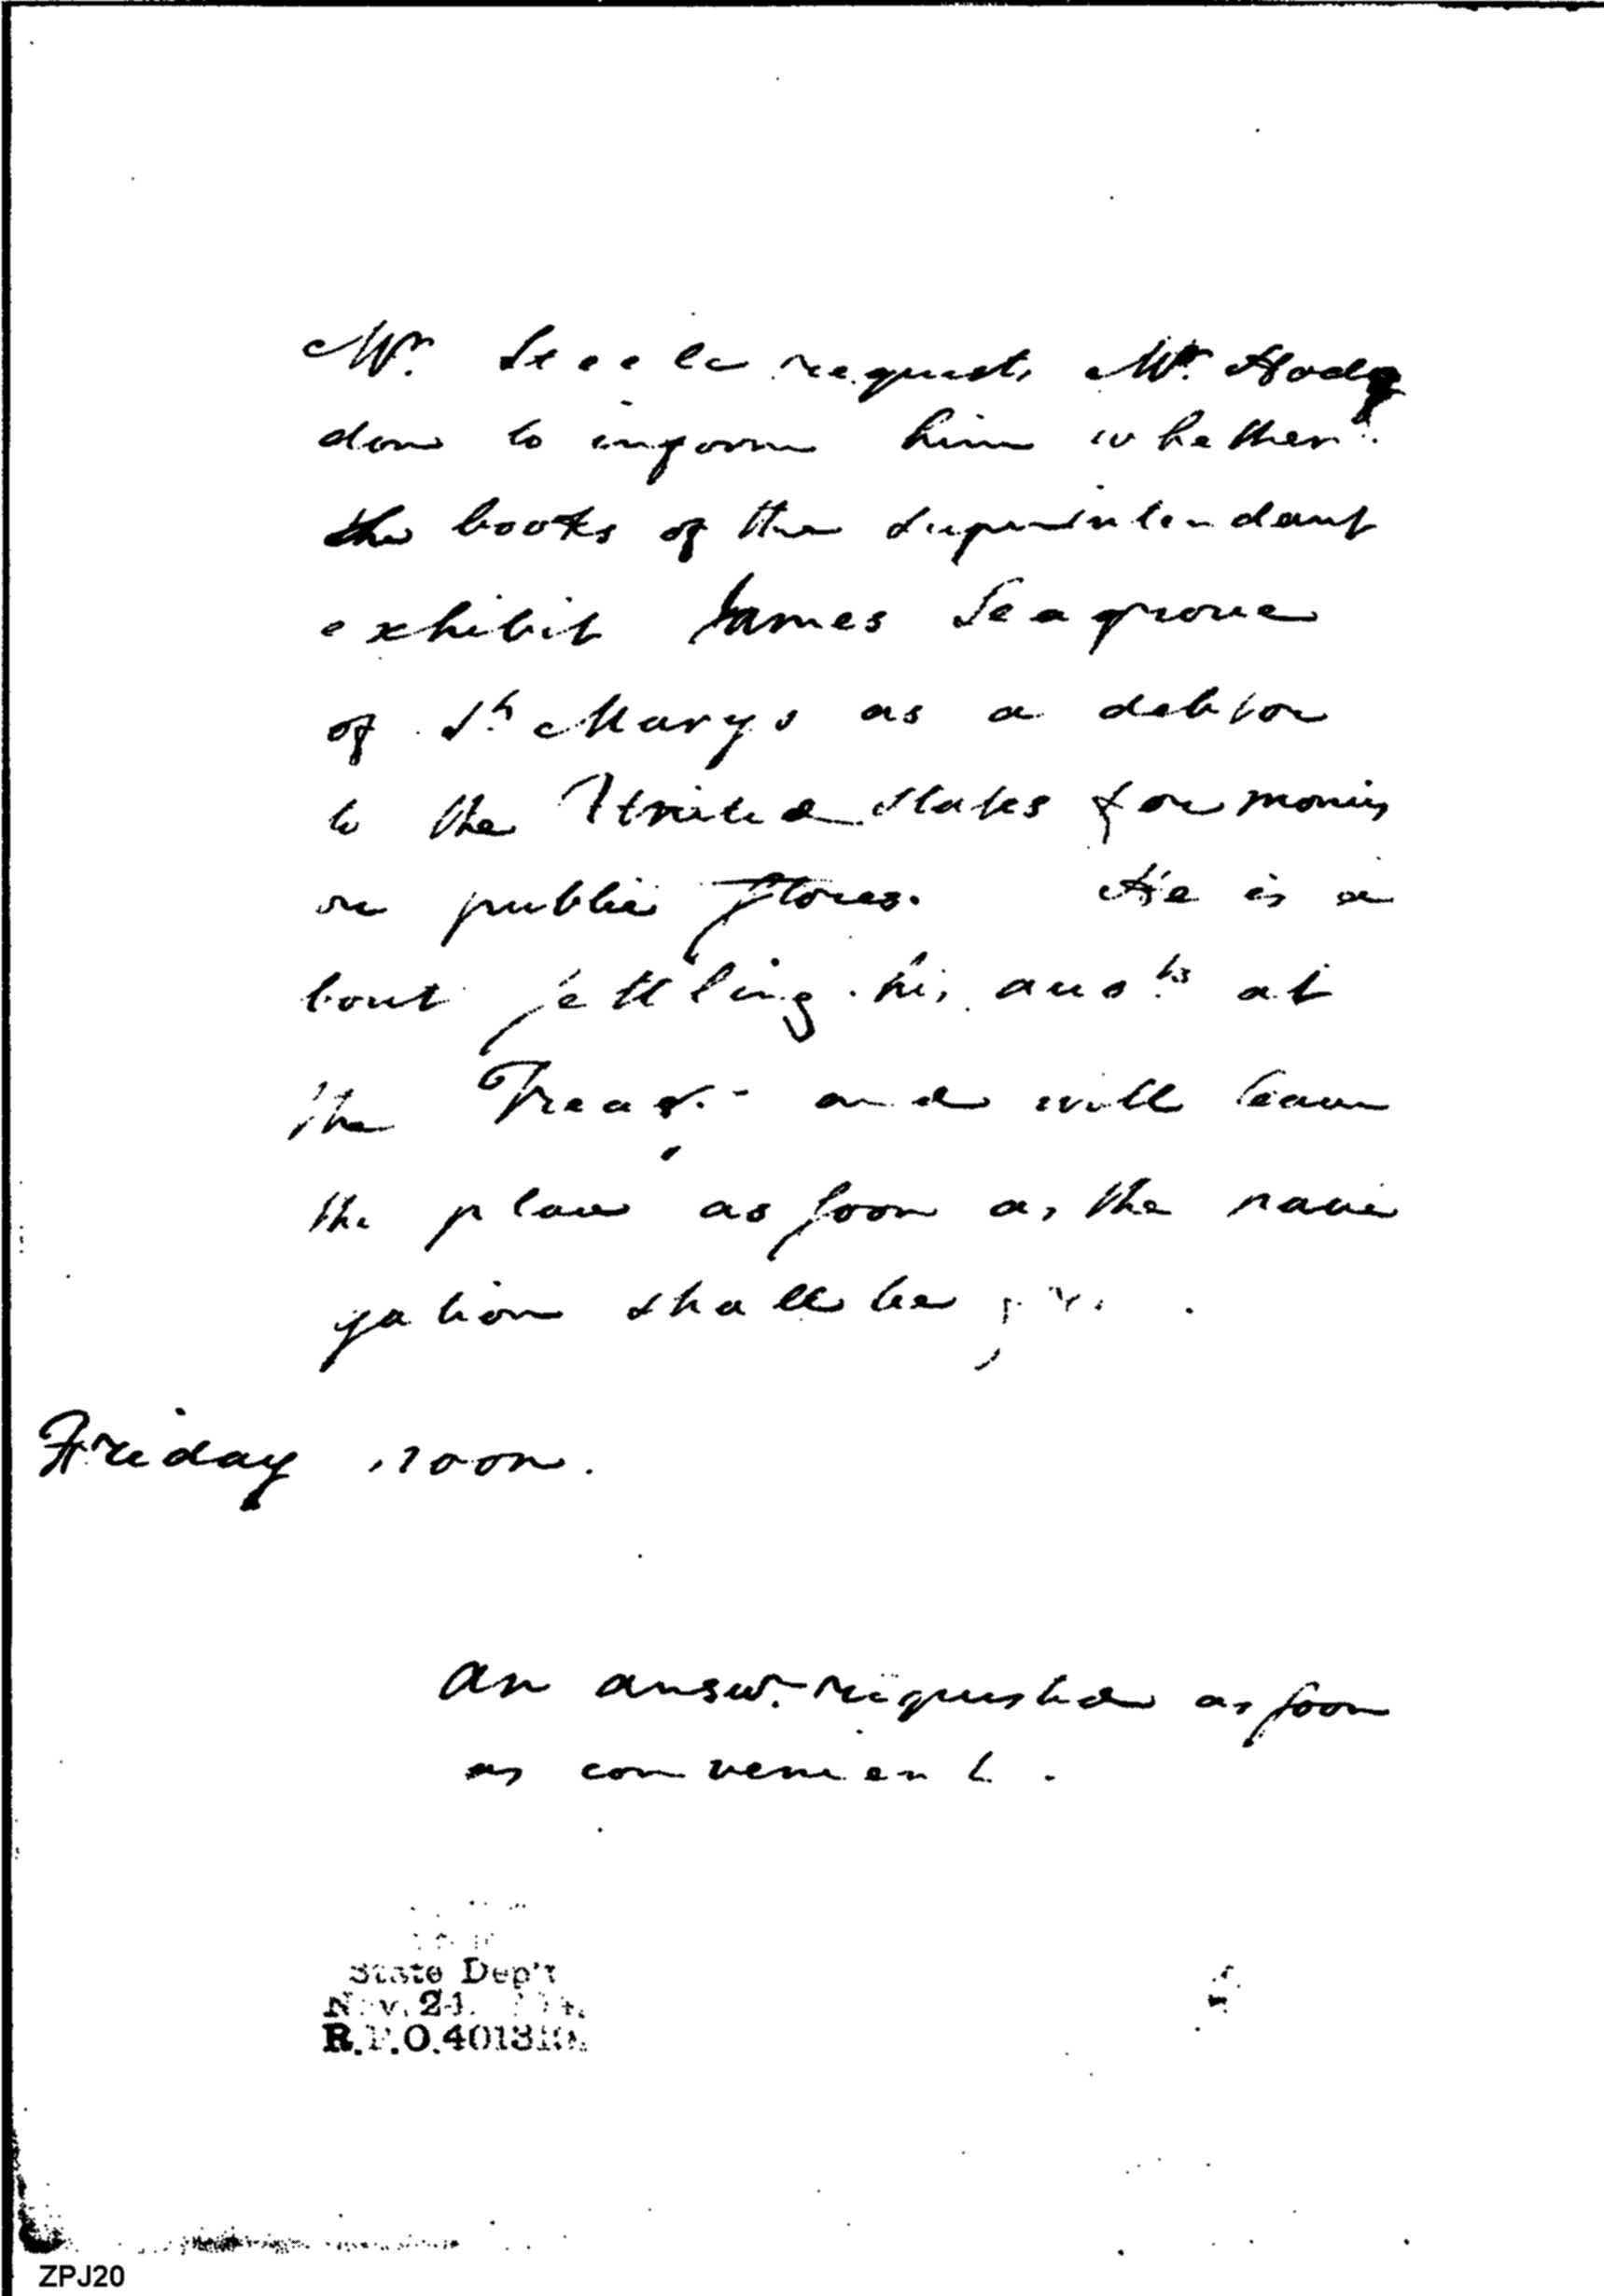 Mr. Steele requests Mr. Hodg
don to inform him whether
the books of the Superintendant
exhibit James Seagrove
of St. Marys as a debtor
to the United States for monies
or public stores. He is a
bout settling his accots. at
the Treasy. and will leave
the place as soon as the navi
gation shall be
Friday noon.
An answr. requested as soon
as convenient.
State Dep't
R.P.O.
ZPJ20